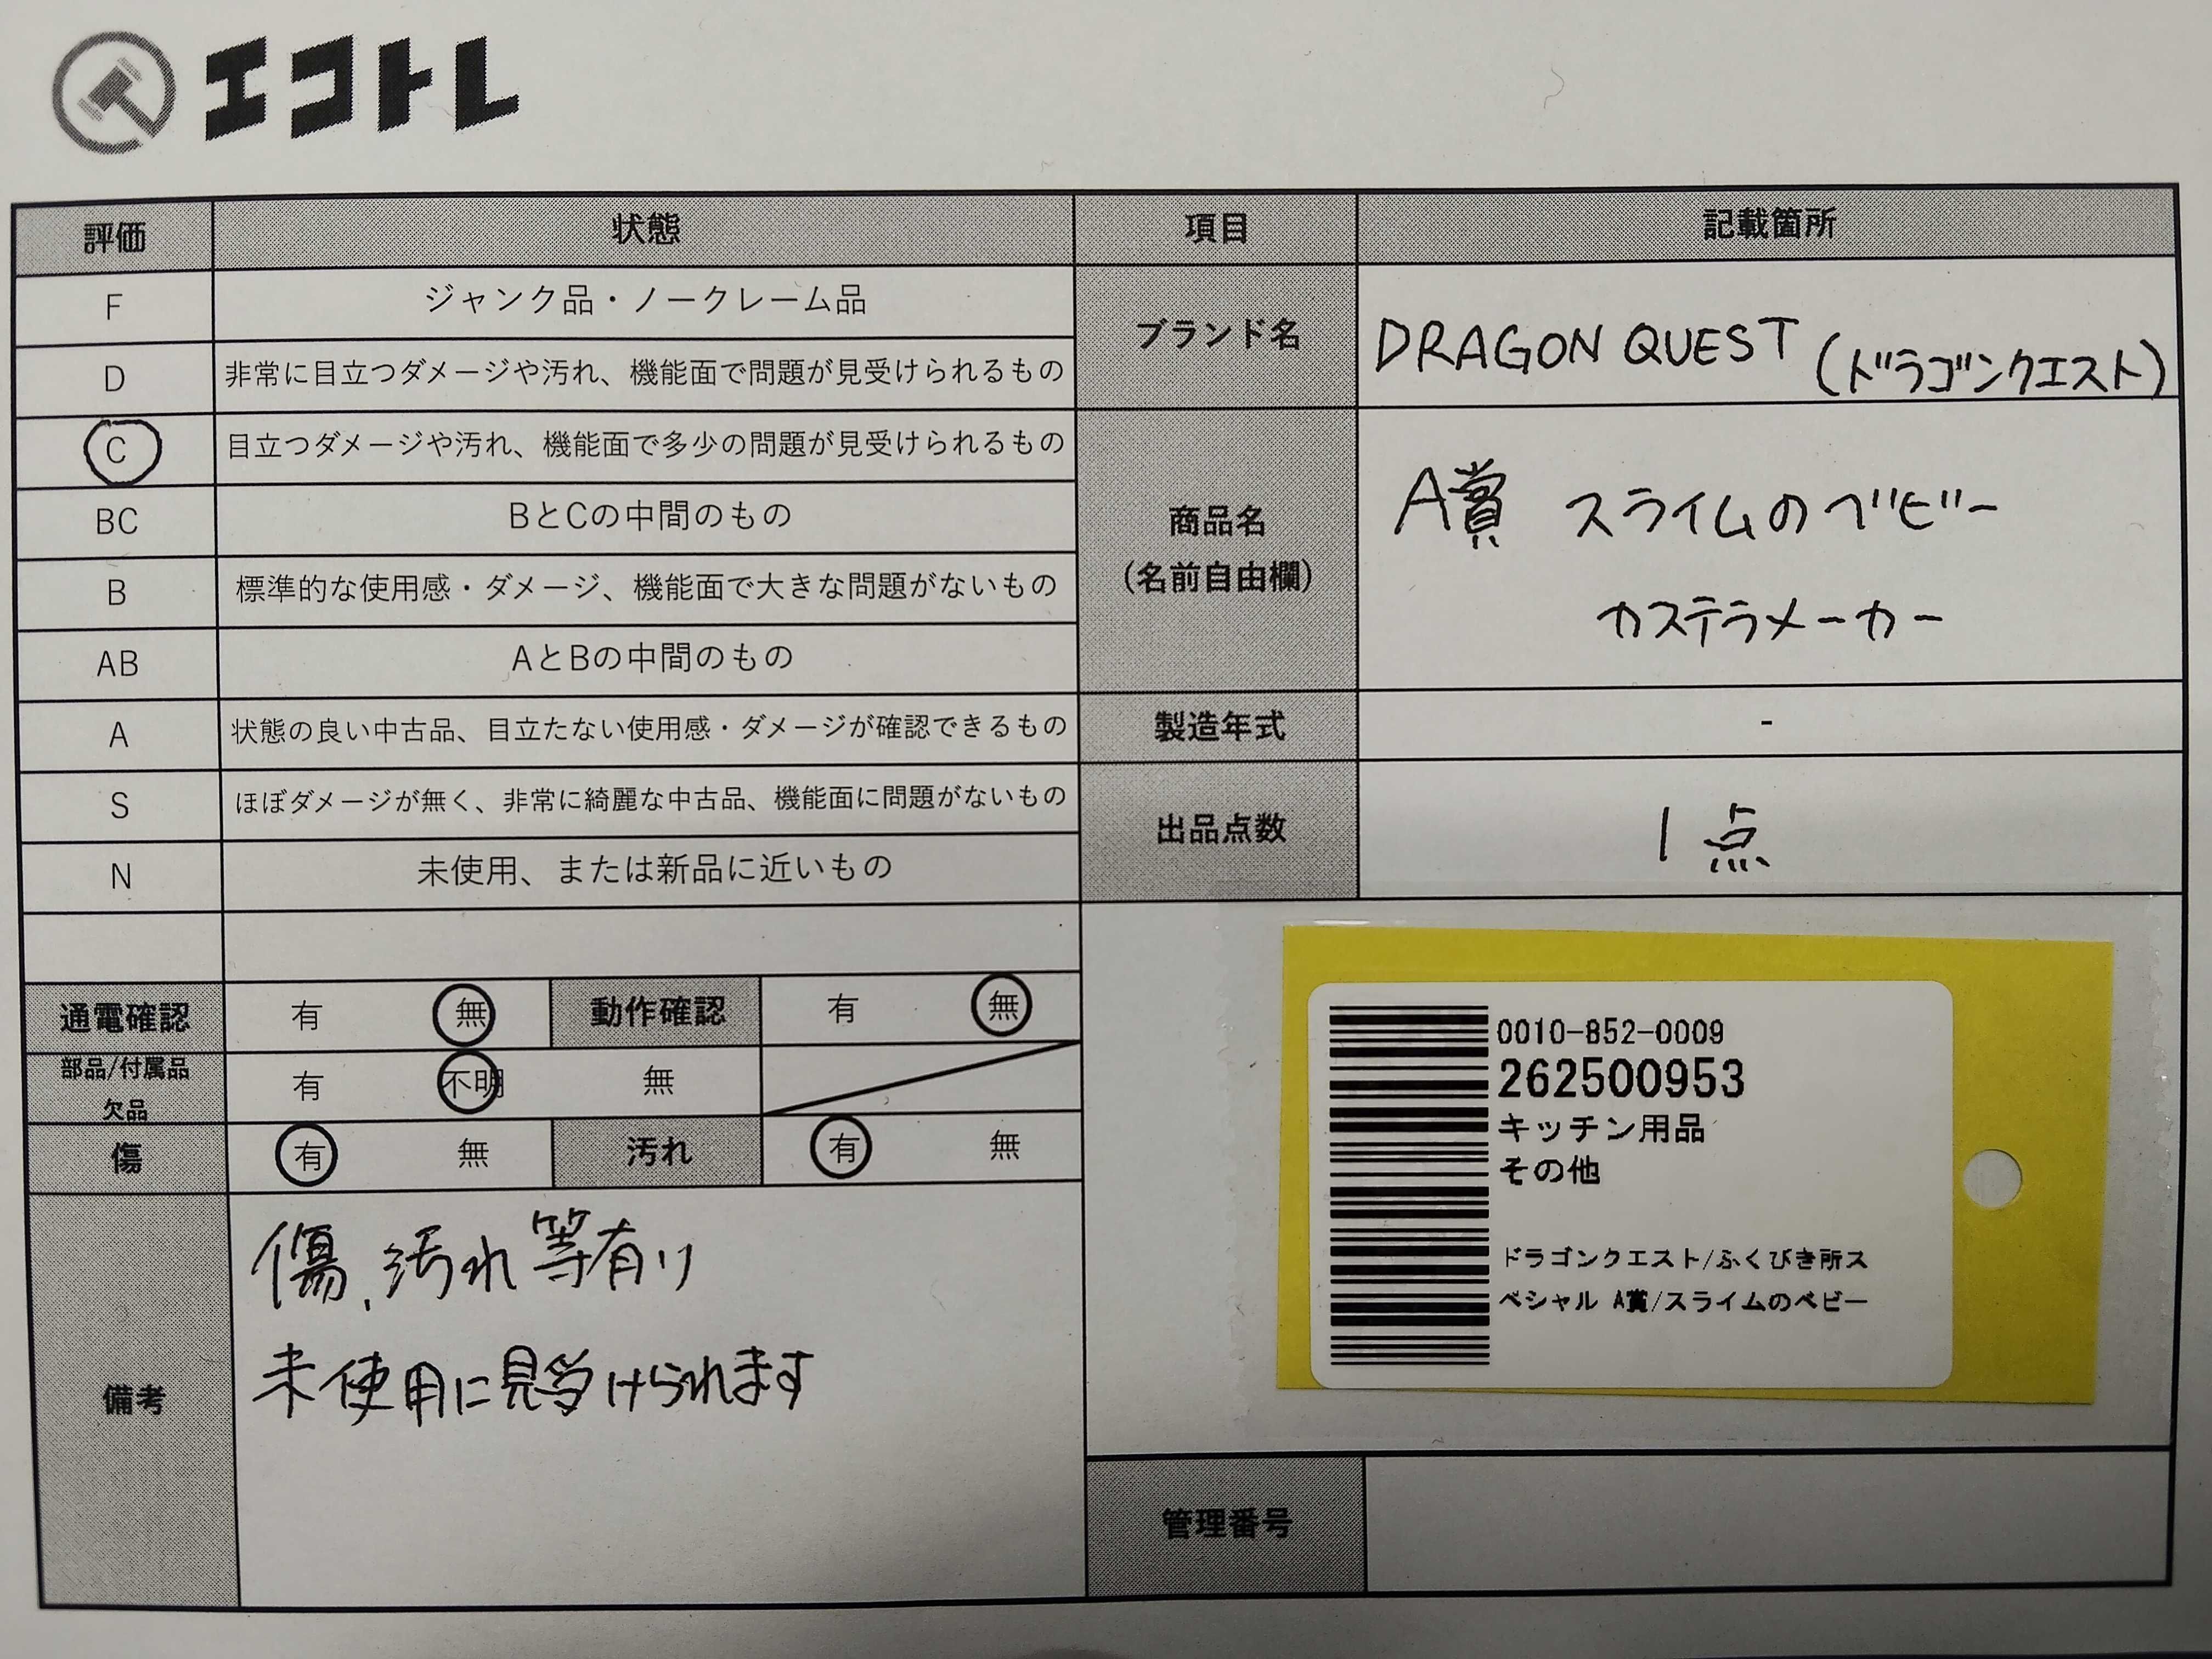 エコトレ
評価 状態
F ジャンク品・ノークレーム品
D 非常に目立つダメージや汚れ、機能面で問題が見受けられるもの
C 目立つダメージや汚れ、機能面で多少の問題が見受けられるもの
BC BとCの中間のもの
B 標準的な使用感・ダメージ、機能面で大きな問題がないもの
AB AとBの中間のもの
A 状態の良い中古品、目立たない使用感・ダメージが確認できるもの
S ほぼダメージが無く、非常に綺麗な中古品、機能面に問題がないもの
N 未使用、または新品に近いもの
通電確認 有 無 動作確認 有 無
部品/付属品
欠品 有 不明 無
傷 有 無 汚れ 有 無
備考
傷、汚れ等有り
未使用に見受けられます
項目 記載箇所
ブランド名 DRAGON QUEST (ドラゴンクエスト)
商品名
(名前自由欄)
A賞 スライムのベビー
カステラメーカー
製造年式 -
出品点数 1点
0010-852-0009
262500953
キッチン用品
その他
ドラゴンクエスト/ふくびき所ス
ペシャル A賞/スライムのベビー
管理番号